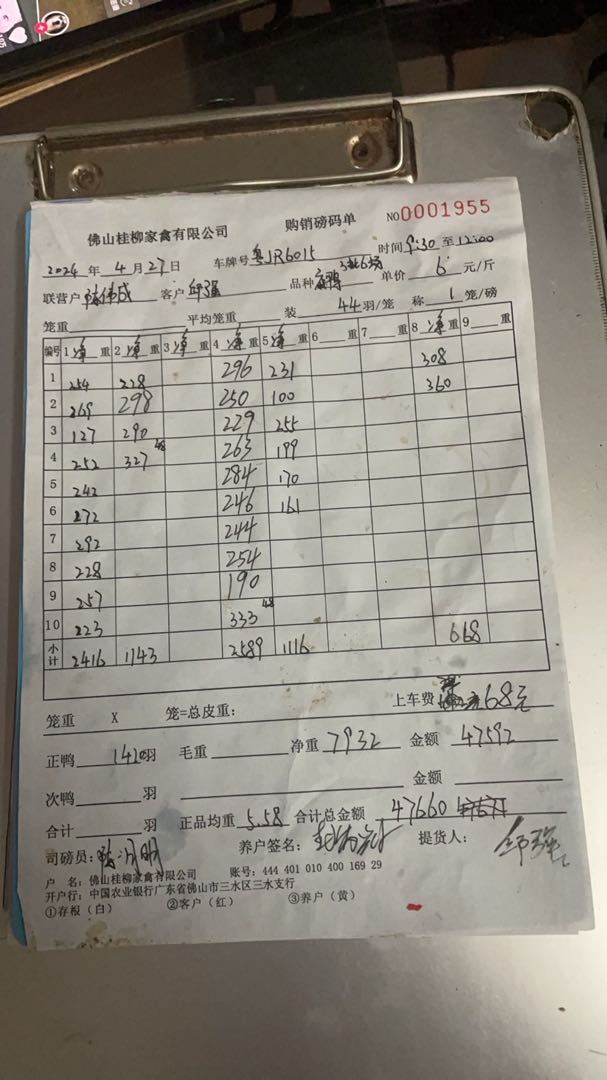 佛山桂柳家禽有限公司 购销磅码单 NO0001955
2024年4月27日 车牌号粤JR6015 时间9:30至12:00
联营户 客户邱强 品种 单价6元/斤
笼重 平均笼重 装44羽/笼 称1笼/磅
编号 1净重 2净重 3净重 4净重 5净重 6重 7重 8净重 9重
1 254 228 296 231 308
2 269 298 250 100 360
3 127 290 229 255
4 252 327 48 263 199
5 242 284 170
6 272 246 161
7 292 244
8 228 254
9 257 190
10 223 333 48
小计 2416 1143 2589 1116 668
上车费 68元
笼重 X 笼=总皮重:
正鸭1420羽 毛重 净重7932 金额47592
次鸭 羽 金额
合计 羽 正品均重5.58 合计总金额47660
司磅员: 养户签名: 提货人:邱强
户 名:佛山桂柳家禽有限公司 账号:444 401 010 400 169 29
开户行:中国农业银行广东省佛山市三水区三水支行
①存根(白) ②客户(红) ③养户(黄)